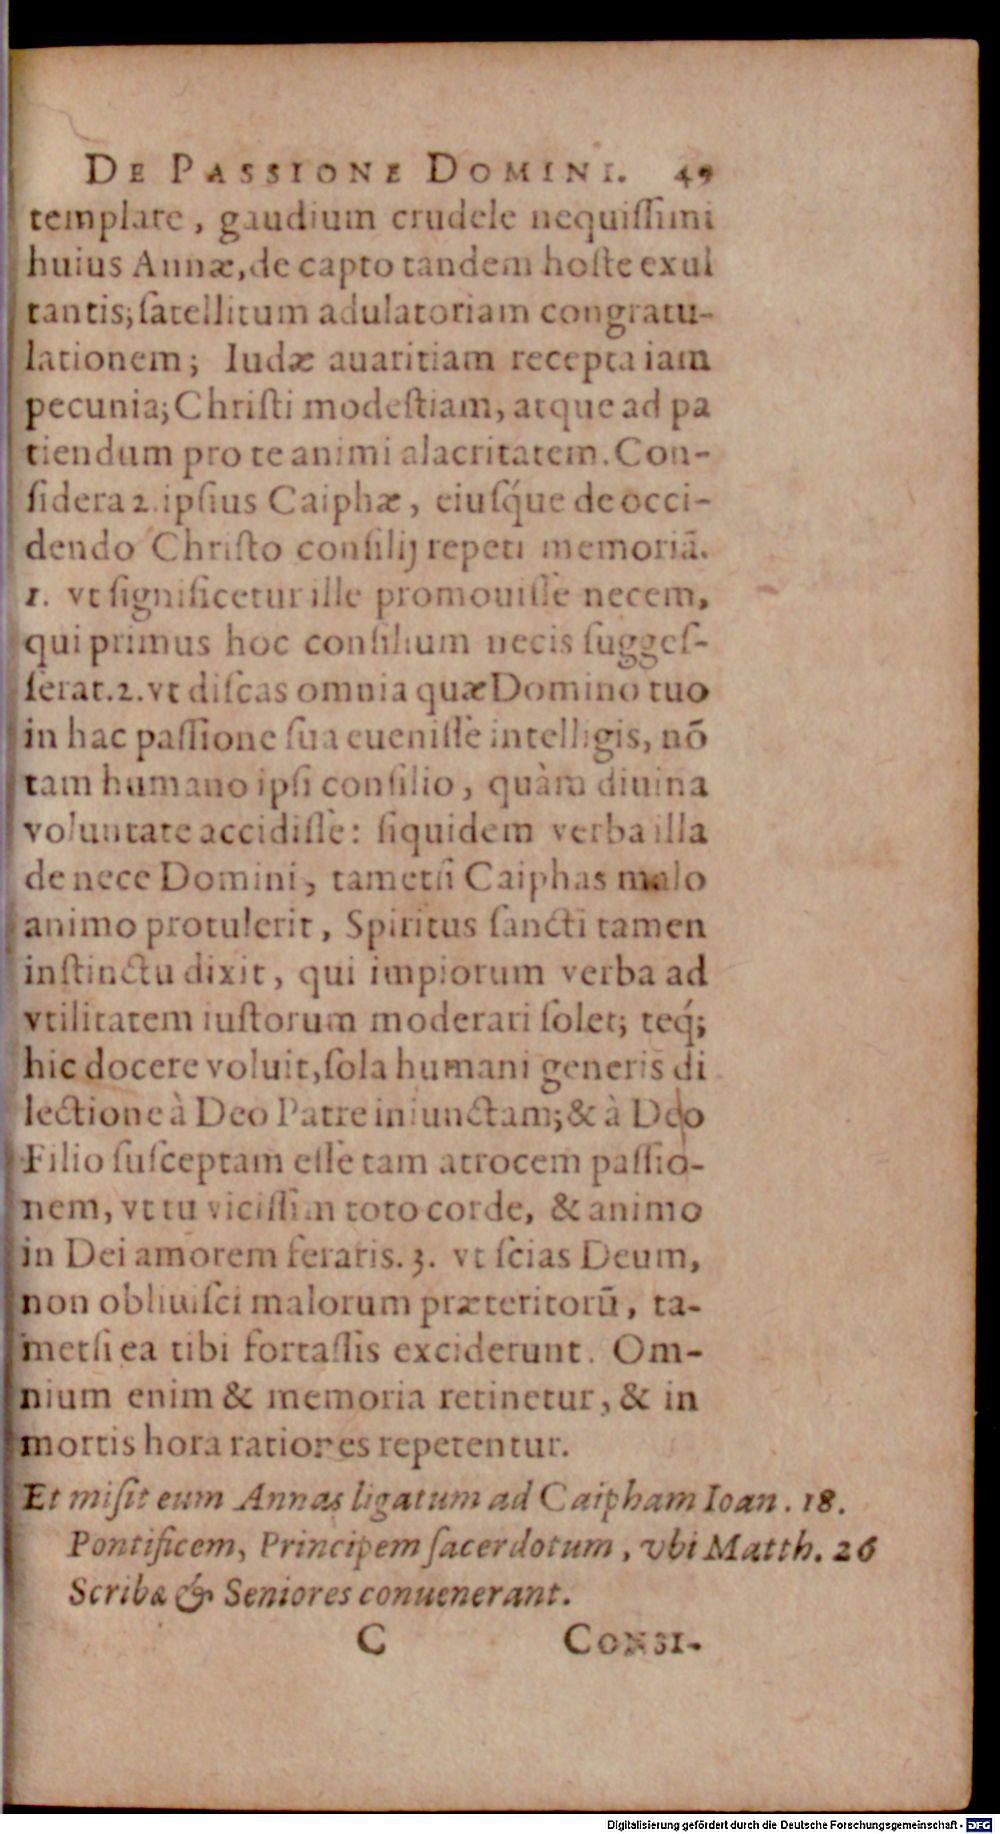 DE PASSIONE DOMINI. 49
templare, gaudium crudele nequiſſimi
huius Annæ, de capto tandem hoſte exul
tantis; ſatellitum adulatoriam congratu-
lationem; Iudæ auaritiam recepta iam
pecunia; Chriſti modeſtiam, atque ad pa
tiendum pro te animi alacritatem. Con-
ſidera 2. ipſius Caiphæ, eiuſq́ue de occi-
dendo Chriſto conſilij repeti memoriā.
1. vt ſignificetur ille promouiſſe necem,
qui primus hoc conſilium necis ſuggeſ-
ſerat. 2. vt diſcas omnia quæ Domino tuo
in hac paſſione ſua eueniſſe intelligis, nō
tam humano ipſi conſilio, quàm diuina
voluntate accidiſſe: ſiquidem verba illa
de nece Domini, tametſi Caiphas malo
animo protulerit, Spiritus ſancti tamen
inſtinctu dixit, qui impiorum verba ad
vtilitatem iuſtorum moderari ſolet; teq́;
hic docere voluit, ſola humani generis di
lectione à Deo Patre iniunctam; & à Deo
Filio ſuſceptam eſſe tam atrocem paſſio-
nem, vt tu viciſſim toto corde, & animo
in Dei amorem feraris. 3. vt ſcias Deum,
non obliuiſci malorum præteritorū, ta-
metſi ea tibi fortaſſis exciderunt. Om-
nium enim & memoria retinetur, & in
mortis hora rationes repetentur.
Et miſit eum Annas ligatum ad Caipham Ioan. 18.
Pontificem, Principem ſacerdotum, vbi Matth. 26
Scribæ & Seniores conuenerant.
C CONSI-
Digitalisierung gefördert durch die Deutsche Forschungsgemeinschaft - DFG